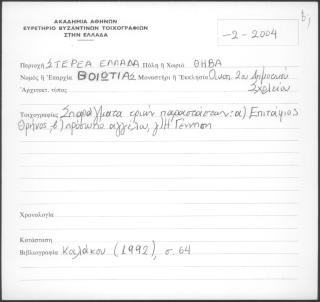 ΑΚΑΔΗΜΙΑ ΑΘΗΝΩΝ
ΕΥΡΕΤΗΡΙΟ ΒΥΖΑΝΤΙΝΩΝ ΤΟΙΧΟΓΡΑΦΙΩΝ
ΣΤΗΝ ΕΛΛΑΔΑ
-2-2004
Περιοχή ΣΤΕΡΕΑ ΕΛΛΑΔΑ Πόλη ή Χωριό ΘΗΒΑ
Νομός ή Επαρχία ΒΟΙΩΤΙΑΣ Μοναστήρι ή Εκκλησία 2ου Δημοτικού
Αρχιτεκτ. τύπος Σχολείου
Τοιχογραφίες Σπαράγματα τριών παραστάσεων: α) Επιτάφιος
Θρήνος, β) πρόσωπο αγγέλου, γ) Η Γέννηση
Χρονολογία
Κατάσταση
Βιβλιογραφία Κοιλάκου (1992), σ. 64